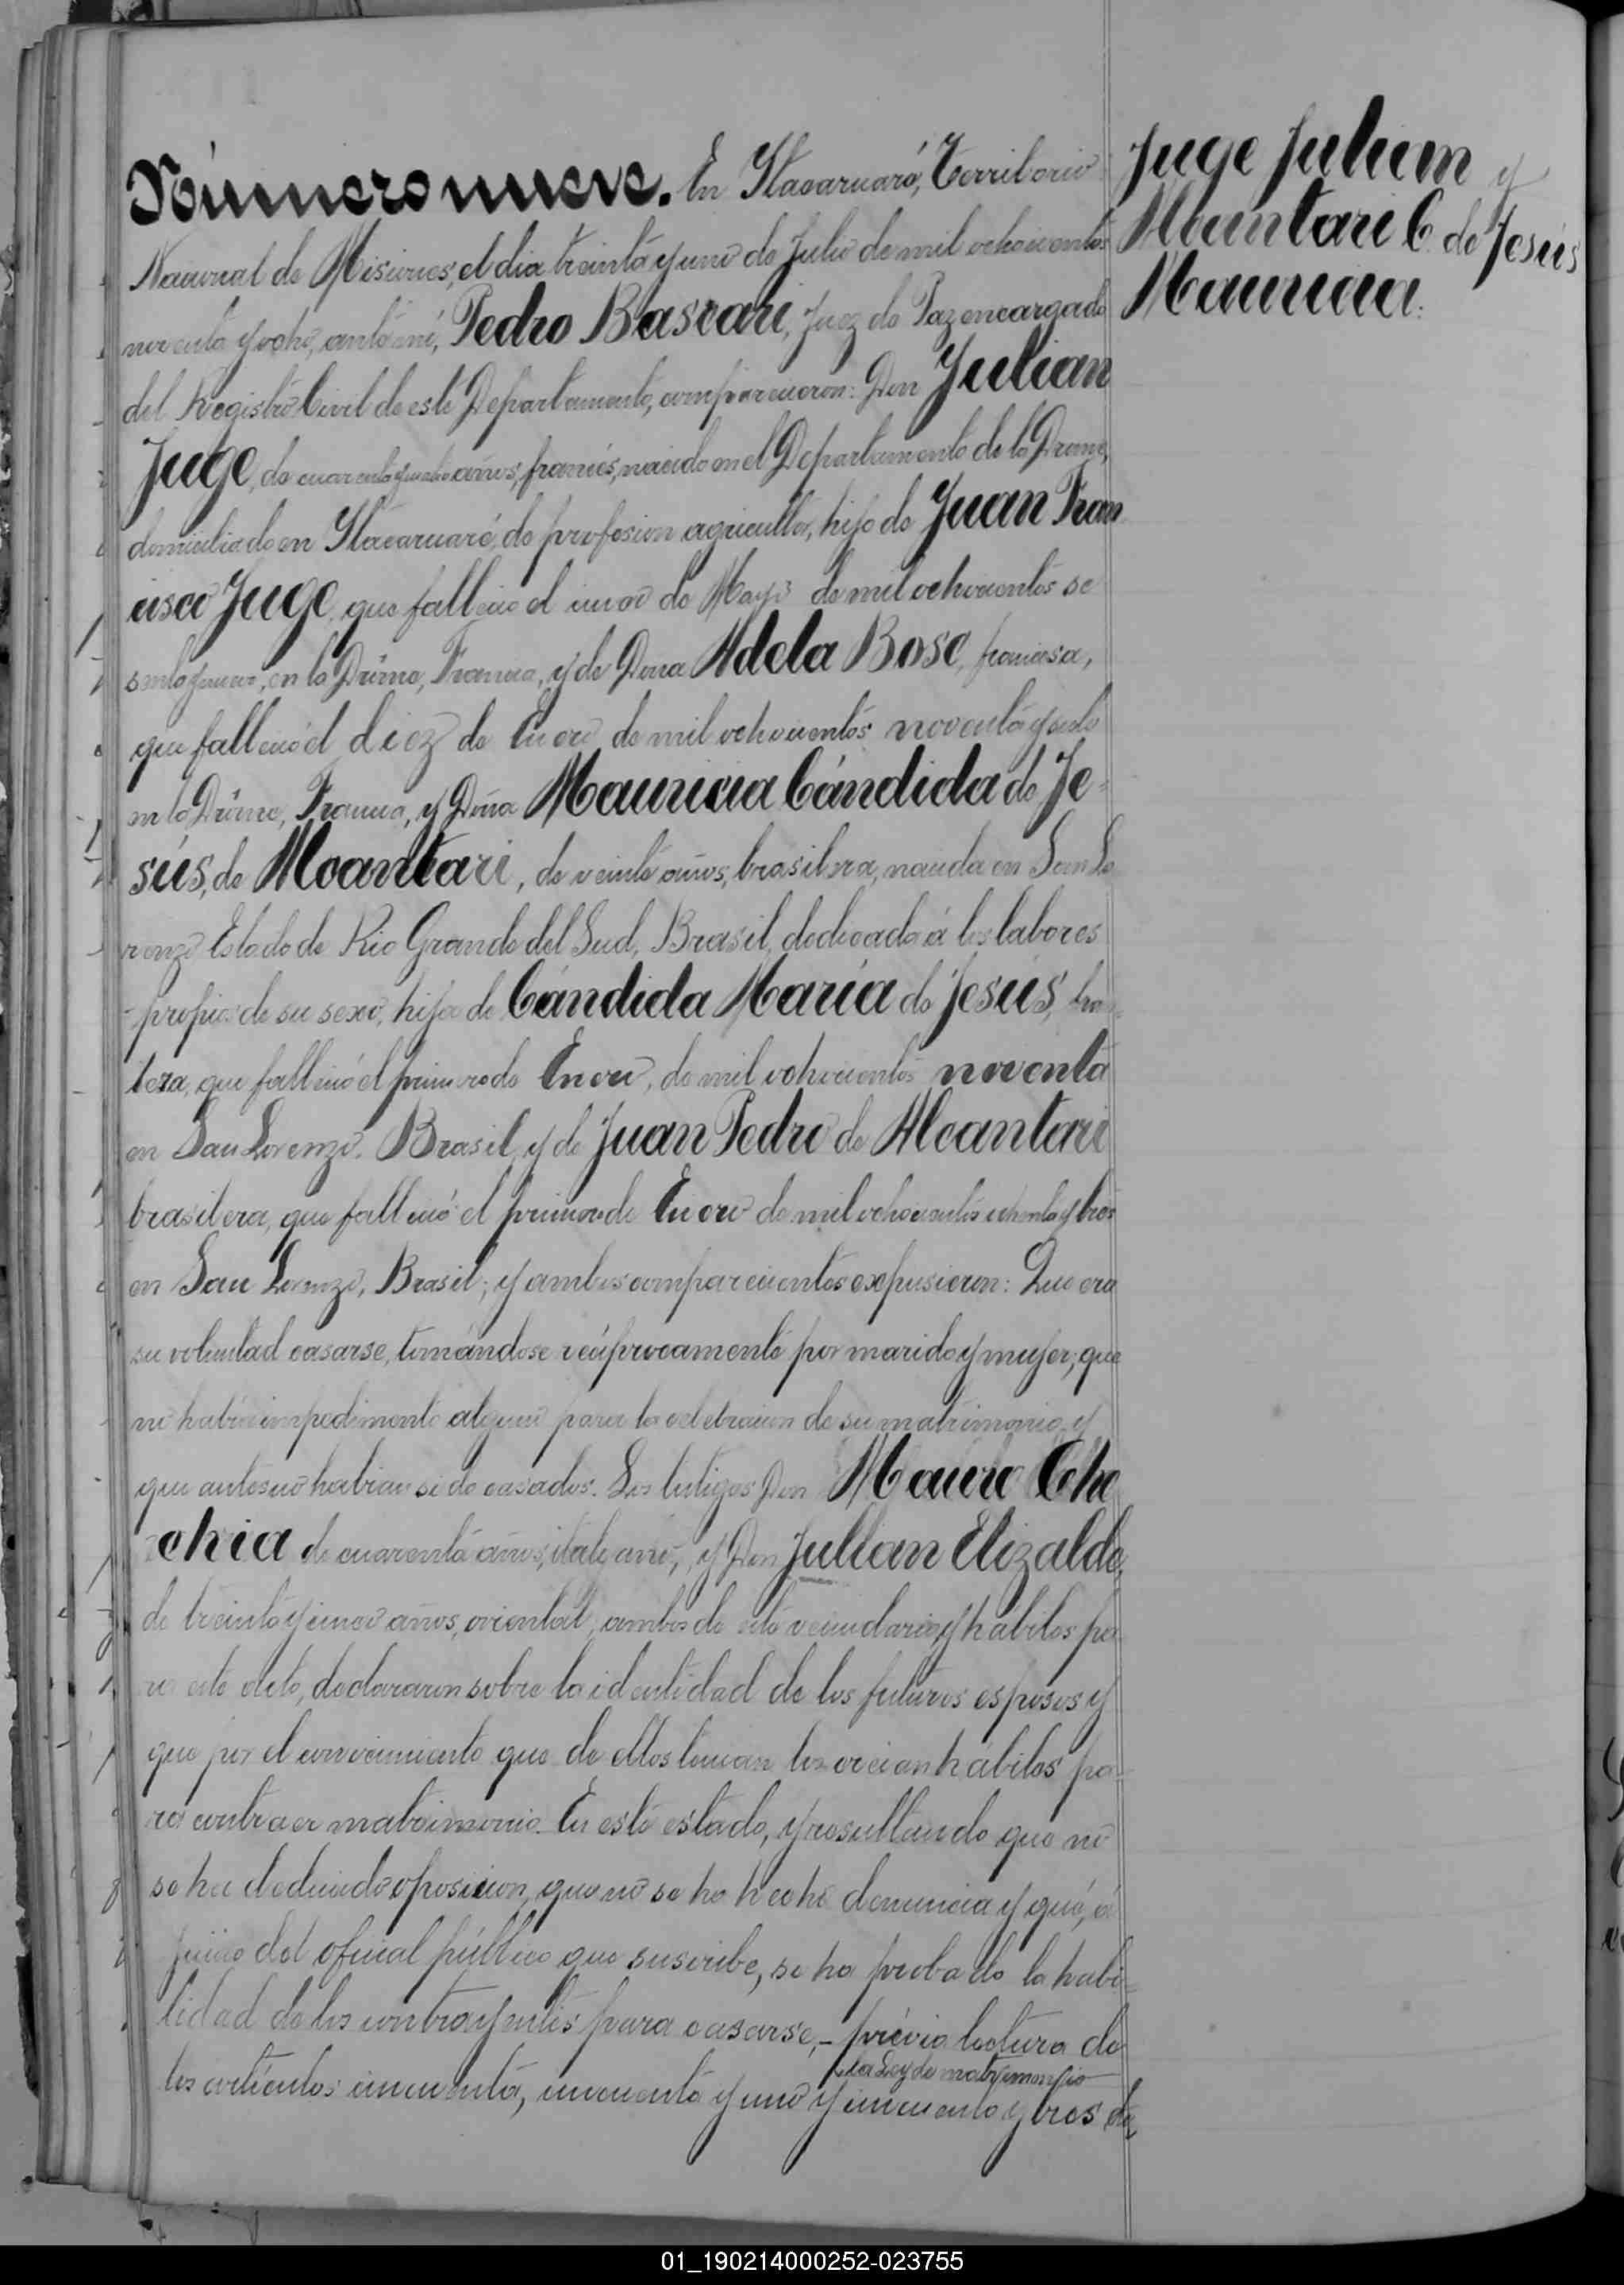 Número nueve. En Itacaruaré, Territorio
Nacional de Misiones, el dia treinta y uno de Julio de mil ochocientos
noventa y ocho, ante mí, Pedro Bascari, Juez de Paz encargado
del Registro Civil de este Departamento, comparecieron: Don Julian
Juge, de cuarenta y años, francés, nacido en el Departamento de la Drome,
domiciliado en Itacaruaré, de profesion agricultor, hijo de Juan Fran
cisco Juge, que falleció el de Mayo de mil ochocientos se
senta y, en la Drôme, Francia, y de Doña Adela Bosc, francesa,
que falleció el diez de Enero de mil ochocientos noventa y
en la Drôme, Francia, y Doña Mauricia Cándida de Je-
sús, de Alcantari, de veinte años, brasilera, nacida en San Lo
renzo Estado de Rio Grande del Sud, Brasil, dedicada á los labores
propios de su sexo, hija de Cándida María de Jesús, bra-
lera, que falleció el primero de Enero, de mil ochocientos noventa
en San Lorenzo, Brasil, y de Juan Pedro de Alcantari
brasilera, que falleció el primero de Enero de mil ochocientos ochenta y tres
en San Lorenzo, Brasil; y ambos comparecientes expusieron: Que era
su voluntad casarse, tomándose recíprocamente por marido y mujer; que
no había impedimento alguno para la celebracion de su matrimonio, y
que antes no habian sido casados. Los testigos Don Mauro Che
chia de cuarenta años, italyano, y Don Jullian Elizalde,
de treinta y años, oriental, ambos de este vecindario, y hábiles pa
ra este acto, declararon sobre la identidad de los futuros esposos y
que por el conocimiento que de ellos tienen los creian hábiles pa-
ra contraer matrimonio. En este estado, y resultando que no
se ha deducido oposicion, que no se ha hecho denuncia y que, á
juicio del oficial público que suscribe, se ha probado la habi-
lidad de los contrayentes para casarse,- prévia lectura de
la Ley de matrimonio
los artículos cincuenta, cincuenta y uno y cincuenta y tres de,
Juge Julian y
Alcantari C. de Jesús
Mauricia.
01_190214000252-023755